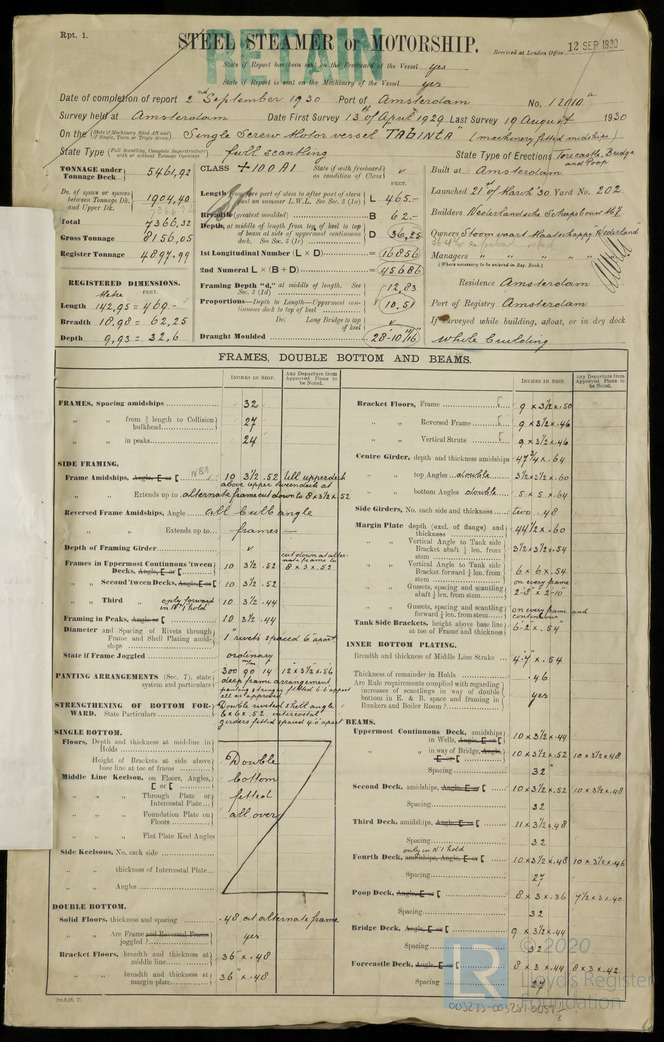 Rpt. 1.
STEEL STEAMER or MOTORSHIP.
RETAIN
Received at London Office 12 SEP 1930
State if Report has been sent on the Freeboard of the Vessel yes
State if Report is sent on the Machinery of the Vessel yes
Date of completion of report 2nd September 1930 Port of Amsterdam No. 12010a
Survey held at Amsterdam Date First Survey 13th of April 1929 Last Survey 19 August 1930
On the Single Screw Motor vessel "TABINTA" (machinery fitted midships)
State Type full scantling State Type of Erections Forecastle, Bridge and Poop
TONNAGE under Tonnage Deck 5461,92
Do. of space or spaces between Tonnage Dk. and Upper Dk. 1904,40
Total 7366,32
Gross Tonnage 8156,05
Register Tonnage 4897,99
REGISTERED DIMENSIONS.
FEET.
Length 142,95 = 469 -
Breadth 18,98 = 62,25
Depth 9,93 = 32,6
CLASS +100A1 State if with freeboard as condition of Class
FEET.
L 465.-
Breadth (greatest moulded) B 62.-
Depth, at middle of length from top of keel to top of beam at side of uppermost continuous deck. See Sec. 3 (1c) D 36,25
1st Longitudinal Number (L × D) = 16856
2nd Numeral L × (B + D) = 45686
Framing Depth "d," at middle of length. See Sec. 3 (1d) 12,83
Proportions—Depth to Length—Uppermost continuous deck to top of keel 10,51
Do. Long Bridge to top of keel
Draught Moulded 28'-10 11/16"
Built at Amsterdam
Launched 21st of March 30 Yard No. 202
Builders Nederlandsche Scheepsbouw My.
Owners Stoomvaart Maatschappy "Nederland"
Managers " " " "
(Where necessary to be entered in Reg. Book.)
Residence Amsterdam
Port of Registry Amsterdam
If surveyed while building, afloat, or in dry dock
while building
FRAMES, DOUBLE BOTTOM AND BEAMS.
INCHES IN SHIP. Any Departure from Approved Plans to be Noted.
FRAMES, Spacing amidships 32
" " from 3/5 length to Collision bulkhead 27
" " in peaks 24
SIDE FRAMING.
Frame Amidships, Angle, E or [ 10 3½ .52 till upperdeck
above upper tweendeck at
" " Extends up to alternate frame cut down to 8 x 3½ .52
Reversed Frame Amidships, Angle all bulb angle
" " Extends up to frames —
Depth of Framing Girder
Frames in Uppermost Continuous 'tween Decks, Angle, E or [ 10 3½ .52 cut down at alternate frame to 8 x 3 x .52
" " Second 'tween Decks, Angle, E or [ 10 3½ .52
" " Third " only forward in No 1 hold 10 3½ .44
Framing in Peaks, Angle or [ 10 3½ .44
Diameter and Spacing of Rivets through Frame and Shell Plating amidships 1" rivets spaced 6" apart
State if Frame Joggled ordinary
PANTING ARRANGEMENTS (Sec. 7), state system and particulars 300 90 14 12 x 3½ x .56
deep frame arrangement
panting stringers fitted 6'6" apart
all as approved
STRENGTHENING OF BOTTOM FORWARD. State Particulars Double riveted shell angle
6 x 6 x .52 intercostal
girders fitted spaced 4'0" apart
SINGLE BOTTOM.
Floors, Depth and thickness at mid-line in Holds
" Height of Brackets at side above base line at toe of frame
Middle Line Keelson, on Floors, Angles, E or [
" " Through Plate or Intercostal Plate
" " Foundation Plate on Floors
" " Flat Plate Keel Angles
Side Keelsons, No. each side
" " thickness of Intercostal Plate
" " Angles
Double
bottom
fitted
all over
DOUBLE BOTTOM.
Solid Floors, thickness and spacing .48 at alternate frame
" " Are Frame and Reversed Frame joggled? yes
Bracket Floors, breadth and thickness at middle line 36" x .48
" " breadth and thickness at margin plate 36" x .48
INCHES IN SHIP. Any Departure from Approved Plans to be Noted.
Bracket Floors, Frame [ 9 x 3½ x .50
" " Reversed Frame [ 9 x 3½ x .46
" " Vertical Struts [ 9 x 3½ x .46
Centre Girder, depth and thickness amidships 47¾ x .64
" " top Angles double 3½ x 3½ x .60
" " bottom Angles double 5 x 5 x .64
Side Girders, No. each side and thickness two .48
Margin Plate depth (excl. of flange) and thickness 44½ x .60
" " Vertical Angle to Tank side Bracket abaft ¼ len. from stem 3½ x 3½ x .54
" " Vertical Angle to Tank side Bracket forward ¼ len. from stem 6 x 6 x .54
" " Gussets, spacing and scantling abaft ¼ len. from stem on every frame 2'-8" x 2'-10"
" " Gussets, spacing and scantling forward ¼ len. from stem on every frame and continuous
Tank Side Brackets, height above base line at toe of Frame and thickness 6'-2" x .54
INNER BOTTOM PLATING.
Breadth and thickness of Middle Line Strake 4'-7" x .54
Thickness of remainder in Holds .46
Are Rule requirements complied with regarding increases of scantlings in way of double bottom in E. & B. space and framing in Bunkers and Boiler Room? yes
BEAMS.
Uppermost Continuous Deck, amidships in Wells, Angle, E or [ 10 x 3½ x .44
" " in way of Bridge, Angle, E or [ 10 x 3½ x .52 10 x 3½ x .48
Spacing 32"
Second Deck, amidships, Angle, E or [ 10 x 3½ x .52 10 x 3½ x .48
Spacing 32
Third Deck, amidships, Angle, E or [ 11 x 3½ x .48
Spacing 32
only in No 1 hold
Fourth Deck, amidships, Angle, E or [ 10 x 3½ x .48 10 x 3½ x .46
Spacing 27
Poop Deck, Angle, E or [ 8 x 3 x .36 7½ x 3 x .40
Spacing 32
Bridge Deck, Angle, E or [ 9 x 3½ x .44
Spacing 32
Forecastle Deck, Angle, E or [ 8 x 3 x .44 8 x 3 x .42
Spacing 27
© 2020
Lloyd's Register
Foundation